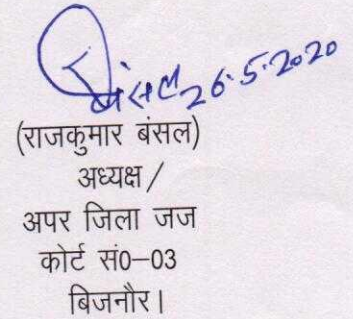 बंसल 26.5.2020
(राजकुमार बंसल)
अध्यक्ष /
अपर जिला जज
कोर्ट सं0–03
बिजनौर।